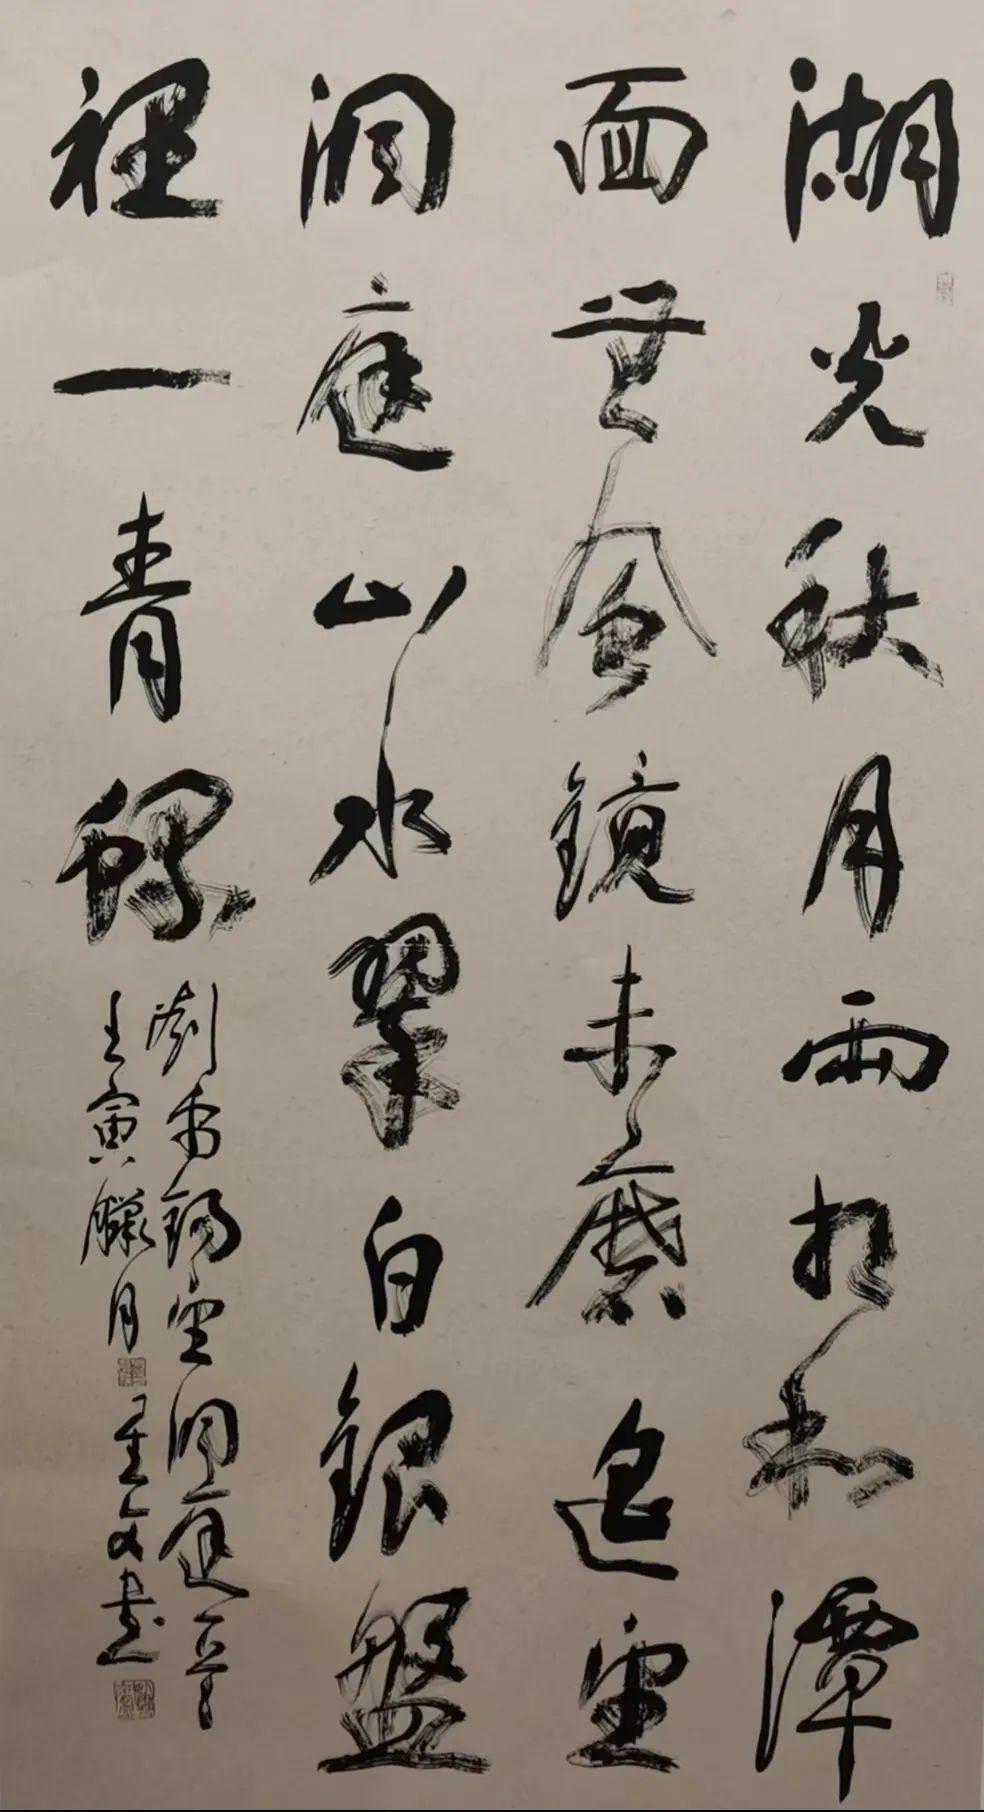 湖光秋月两相和潭
面無風鏡未磨遥望
洞庭山水翠白銀盤
裡一青螺
劉禹錫望洞庭
壬寅臘月
文書